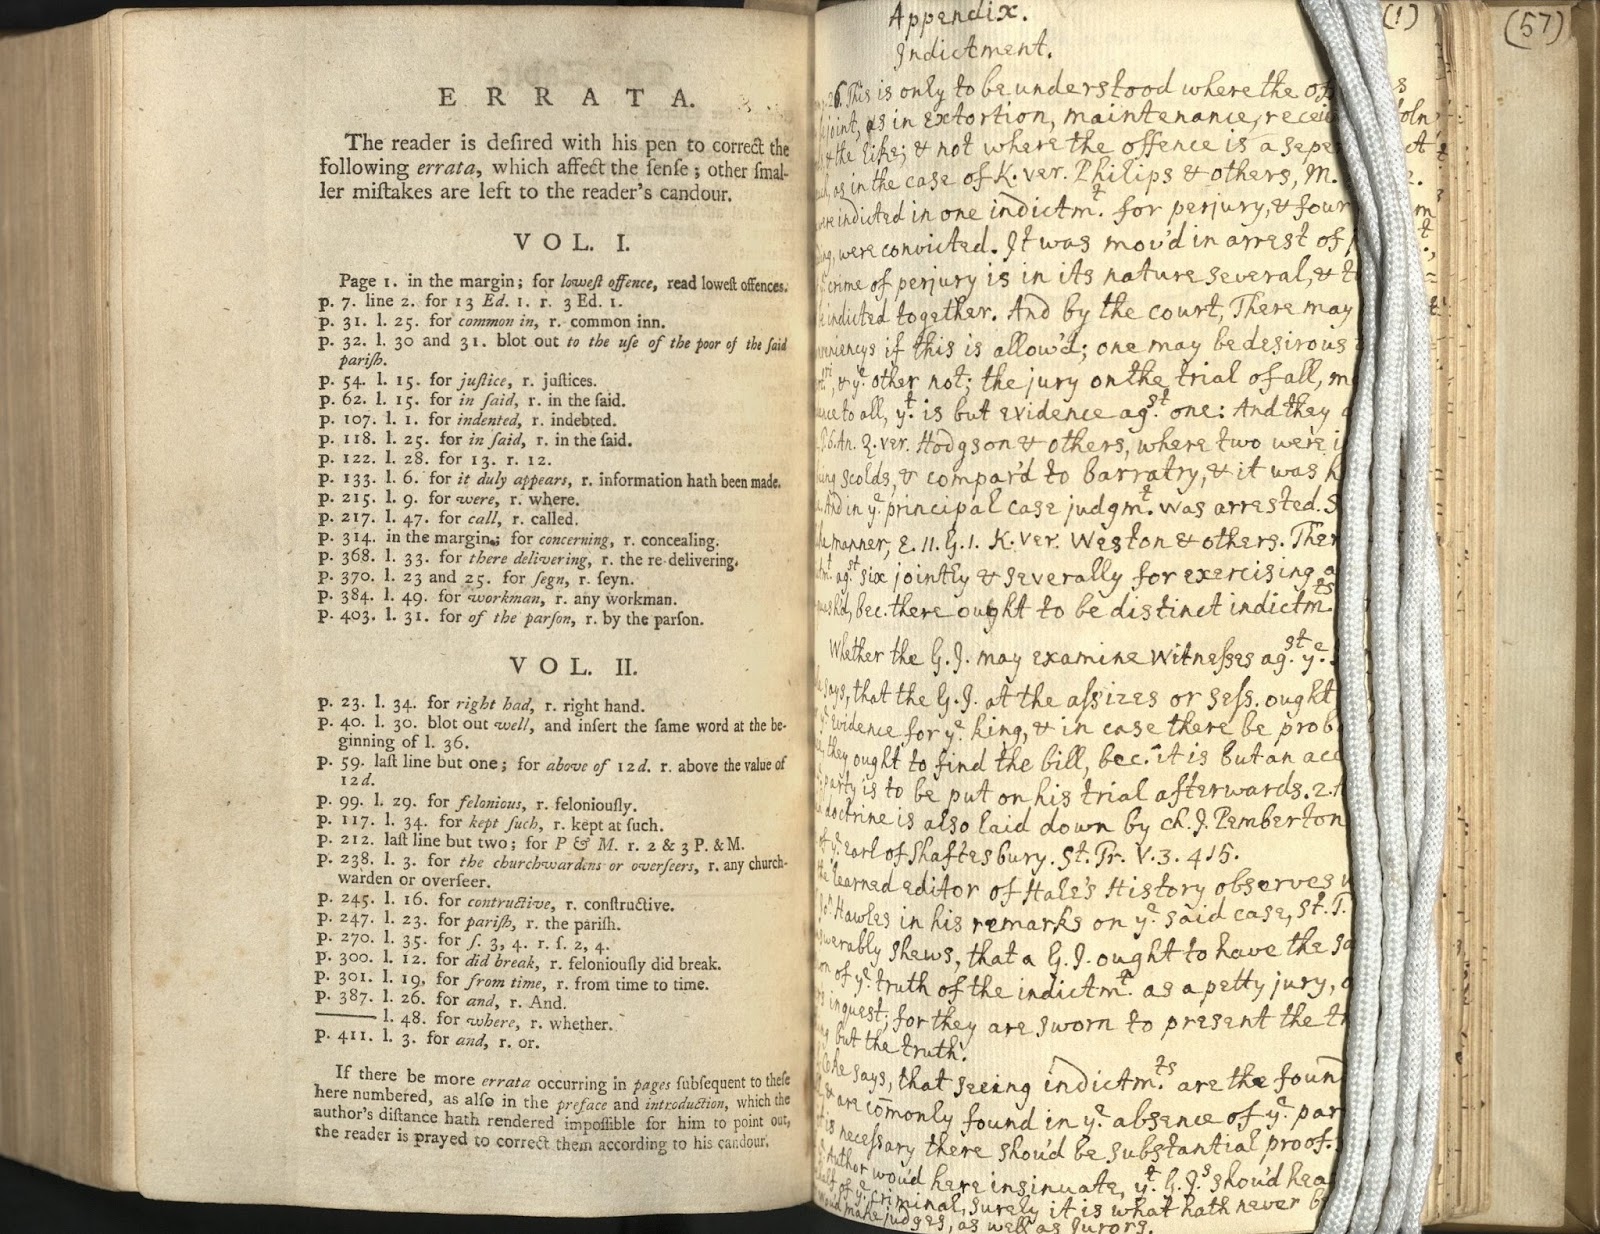 ERRATA.
The reader is deſired with his pen to correct the
following errata, which affect the ſenſe; other ſmal-
ler miſtakes are left to the reader's candour.
VOL. I.
Page 1. in the margin; for loweſt offence, read loweſt offences.
p. 7. line 2. for 13 Ed. 1. r. 3 Ed. 1.
p. 31. l. 25. for common in, r. common inn.
p. 32. l. 30 and 31. blot out to the uſe of the poor of the ſaid
pariſh.
p. 54. l. 15. for juſtice, r. juſtices.
p. 62. l. 15. for in ſaid, r. in the ſaid.
p. 107. l. 1. for indented, r. indebted.
p. 118. l. 25. for in ſaid, r. in the ſaid.
p. 122. l. 28. for 13. r. 12.
p. 133. l. 6. for it duly appears, r. information hath been made.
p. 215. l. 9. for were, r. where.
p. 217. l. 47. for call, r. called.
p. 314. in the margin; for concerning, r. concealing.
p. 368. l. 33. for there delivering, r. the re-delivering.
p. 370. l. 23 and 25. for ſegn, r. ſeyn.
p. 384. l. 49. for workman, r. any workman.
p. 403. l. 31. for of the parſon, r. by the parſon.
VOL. II.
p. 23. l. 34. for right had, r. right hand.
p. 40. l. 30. blot out well, and inſert the ſame word at the be-
ginning of l. 36.
p. 59. laſt line but one; for above of 12d. r. above the value of
12d.
p. 99. l. 29. for felonious, r. feloniouſly.
p. 117. l. 34. for kept ſuch, r. kept at ſuch.
p. 212. laſt line but two; for P & M. r. 2 & 3 P. & M.
p. 238. l. 3. for the churchwardens or overſeers, r. any church-
warden or overſeer.
p. 245. l. 16. for contructive, r. conſtructive.
p. 247. l. 23. for pariſh, r. the pariſh.
p. 270. l. 35. for ſ. 3, 4. r. ſ. 2, 4.
p. 300. l. 12. for did break, r. feloniouſly did break.
p. 301. l. 19. for from time, r. from time to time.
p. 387. l. 26. for and, r. And.
l. 48. for where, r. whether.
p. 411. l. 3. for and, r. or.
If there be more errata occurring in pages ſubſequent to theſe
here numbered, as alſo in the preface and introduction, which the
author's diſtance hath rendered impoſſible for him to point out,
the reader is prayed to correct them according to his candour.
Appendix. (1) (57)
Indictment.
26. This is only to be understood where the
joint, as in extortion, maintenance,
& the like; & not where the offence is a
as in the case of K. ver. Philips & others, M.
indicted in one indictmt. for perjury, & four
were convicted. It was mov'd in arrest of
crime of perjury is in its nature several, &
indicted together. And by the court, There may
if this is allow'd; one may be desirous
& ye. other not; the jury on the trial of all,
to all, yt. is but evidence agst. one: And they
6. An. Q. ver. Hodgson & others, where two were
scolds, & compar'd to barratry, & it was
And in ye. principal case judgmt. was arrested.
manner, E. 11. G. 1. K. ver. Weston & others.
agst. six jointly & severally for exercising
bec. there ought to be distinct indictmts.
Whether the G. J. may examine witneſses agst. ye.
says, that the G. J. at the aſsizes or seſs. ought
evidence for ye. king, & in case there be
they ought to find the bill, bec. it is but an
party is to be put on his trial afterwards. 2.
doctrine is also laid down by Ch. J. Pemberton
of ye. earl of Shaftesbury. St. Tr. V. 3. 415.
the learned editor of Hale's History observes
Hawles in his remarks on ye. said case, St. T.
shews, that a G. J. ought to have the
of ye. truth of the indictmt. as a petty jury,
inquest; for they are sworn to present the
but the truth.
he says, that seeing indictmts. are the
are com̄only found in ye. absence of ye.
is neceſsary there shou'd be substantial proof.
Author wou'd here insinuate, yt. G. J.s shou'd
of ye. criminal, surely it is what hath never
make judges, as well as Jurors.